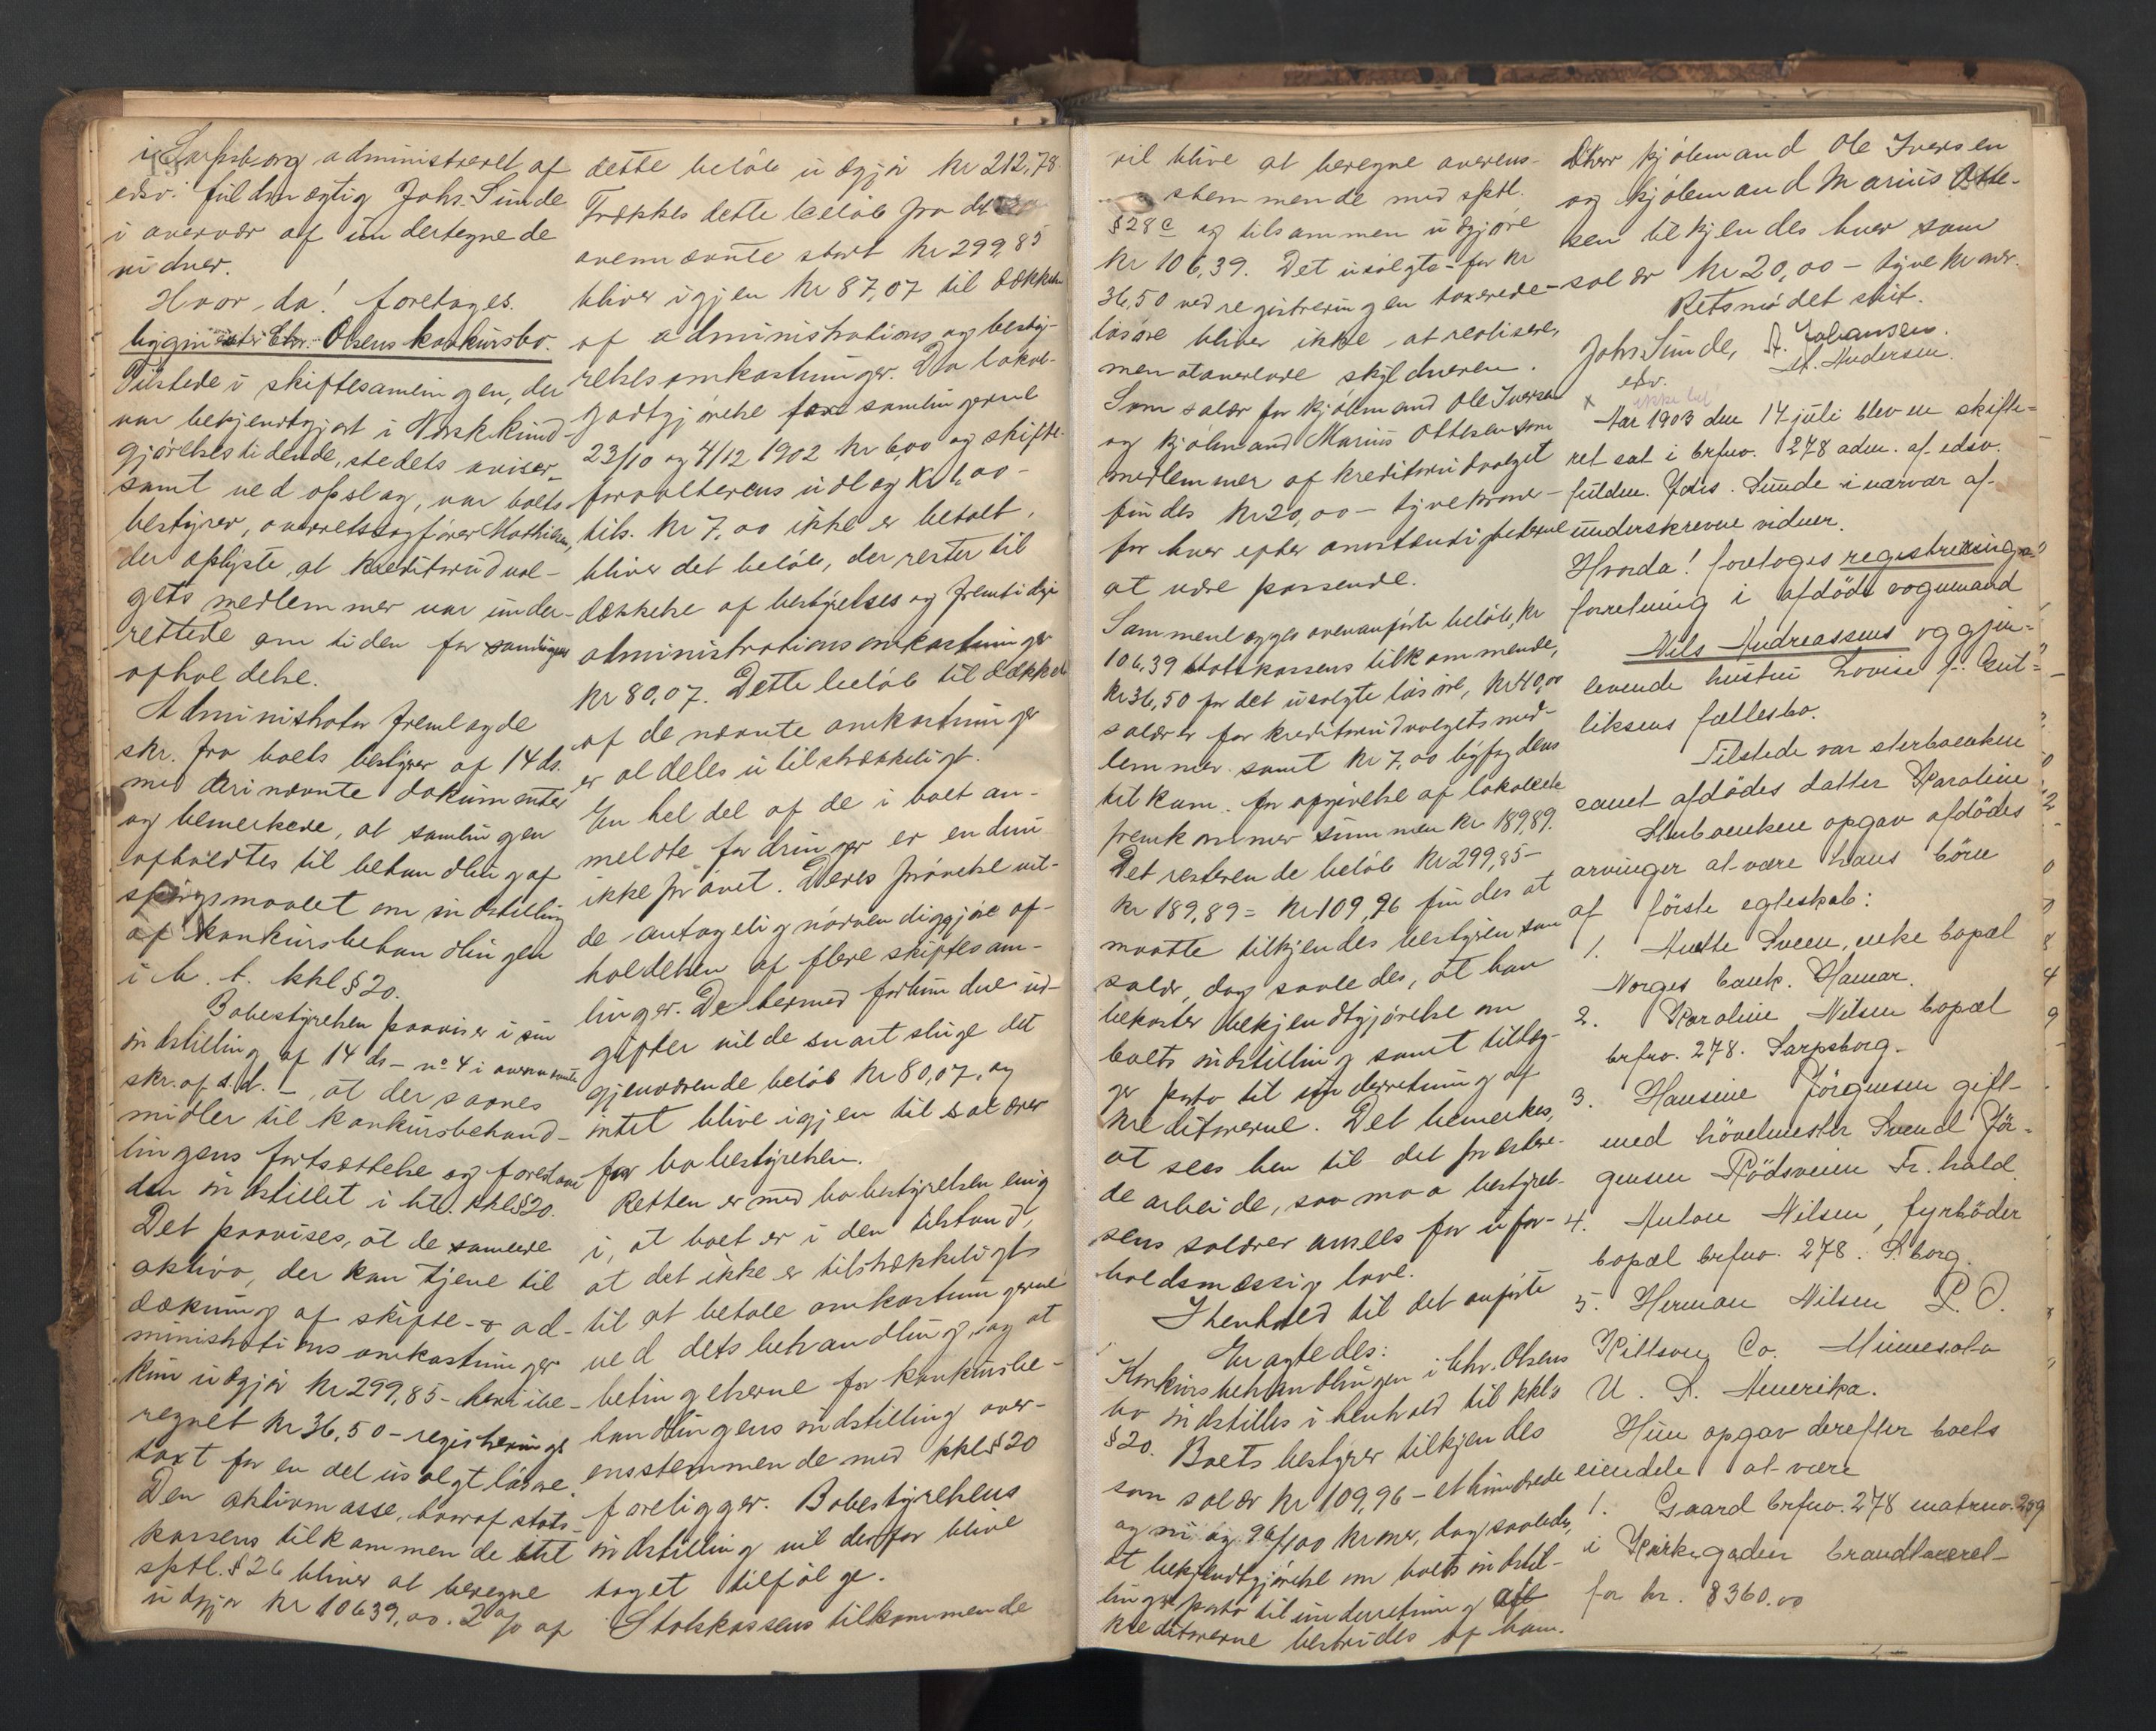 i Sarpsborg administreret af
edsv. fuldmægtig Johs. Sunde
i overvær af undertegnede
vidner.
Hvor da! foretages.
bygmester Chr. Olsens konkursbo.
Tilstede i skiftesamlingen, der
var bekjendtgjort i Norsk kund-
gjørelsestidende, stedets aviser
samt ved opslag, var boets
bestyrer, overretssagfører Mathisen,
der oplyste, at kreditorudval-
gets medlemmer var under-
rettede om tiden for samlingens
afholdelse.
Administrator fremlagde
skr. fra boets bestyrer af 14 ds.
med deri nævnte dokumenter
og bemerkede, at samlingen
afholdtes til behandling af
spørgsmaalet om indstilling
af konkursbehandlingen
i h. t. kkl § 20.
Bobestyrelsen paaviser i sin
indstilling af 14 ds - no 4 i ovennævnte
skr. af s. d. -, at der savnes
midler til konkursbehand-
lingens fortsættelse og foreslaar
den indstillet i ht. kkl § 20.
Det paavises, at de samlede
aktiva, der kan tjene til
dækning af skifte- & ad-
ministrations omkostninger
kun udgjør kr 299,85 - heri ibe-
regnet kr 36,50 - registrerings
taxt for en del usolgt løsøre.
Den aktivmasse, hvoraf stats-
kassens tilkommende
sptl. § 26 bliver at beregne
udgjør kr 10639,00. 2 % af
dette beløb udgjør kr 212,78
Trækkes dette beløb fra det
ovennævnte stort kr 299,85
bliver igjen kr 87,07 til dækkelse
af administrations og besty-
relsesomkostninger. Da lokal-
godtgjørelse for samlingerne
23/10 og 4/12 1902 kr 6,00 og skifte-
forvalterens udlæg kr 1,00 -
tils. kr 7,00 ikke er betalt,
bliver det beløb, der rester til
dækkelse af bestyrelses og fremtidige
administrationsomkostninger
kr 80,07. Dette beløb til dækkelse
af de nævnte omkostninger
er aldeles utilstrækkeligt.
En hel del af de i boet an-
meldte fordringer er endnu
ikke prøvet. Deres prøvelse vil-
de antagelig nødvendiggjøre af-
holdelsen af flere skiftesam-
linger. De hermed forbundne ud-
gifter vilde snart sluge det
gjenværende beløb kr 80,07, og
intet blive igjen til salærer
for bobestyrelsen.
Retten er med bobestyrelsen enig
i, at boet er i den tilstand,
at det ikke er tilstrækkeligt
til at betale omkostningerne
ved dets behandling, og at
betingelserne for konkursbe-
handlingens indstilling over-
ensstemmende med kkl § 20
foreligger. Bobestyrelsens
indstilling vil derfor blive
taget tilfølge.
Statskassens tilkommende
vil blive at beregne overens-
stemmende med sptl.
§ 28 c og tilsammen udgjøre
kr 106,39. Det usolgte - for kr
36,50 ved registreringen taxerede -
løsøre bliver ikke at realisere,
men at overlade skyldneren.
Som salær for kjøbmand Ole Iversen
og kjøbmand Marius Ottesen som
medlemmer af kreditorudvalget
findes kr 20,00 - tyve kroner -
for hver efter omstændighederne
at være passende.
Sammenlægges ovenanførte beløb, kr
106,39 statskassens tilkommende,
kr 36,50 for det usolgte løsøre, kr 40,00
salær for kreditorudvalgets med-
lemmer samt kr 7,00 byfogdens
tilkom. for opgivelse af lokalleie
fremkommer summen kr 189,89.
Det resterende beløb kr 299,85 -
kr 189,89 = kr 109,96 findes at
maatte tilkjendes bestyreren som
salær, dog saaledes, at han
bekoster bekjendtgjørelse om
boets indstilling samt tillæg-
ger porto til underretning af
kreditorerne. Det bemerkes,
at sees hen til det præstere-
de arbeide, saa maa bestyrel-
sens salærer ansees for ufor-
holdsmæssig lave.
I henhold til det anførte
Eragtedes:
Konkursbehandlingen i Chr. Olsens
bo indstilles i henhold til kkls
§ 20. Boets bestyrer tilkjendes
som salær kr 109,96 - et hundrede
og ni og 96/100 kroner, dog saaledes,
at bekjendtgjørelse om boets indstil-
ling og porto til underretning af
kreditorerne bestrides af ham.
Dhrr kjøbmand Ole Iversen
og kjøbmand Marius Otte-
sen tilkjendes hver som
salær kr 20,00 - tyve kroner.
Retsmødet slut.
Johs. Sunde, A. Johansen.
edsv. A. Andersen.
x ikke bet
Aar 1903 den 14 juli blev en skifte-
ret sat i brfno. 278 adm. af edsv.
fuldm. Johs. Sunde i nærvær af
underskrevne vidner.
Hvorda! foretoges registrerings-
forretning i afdøde vognmand
Nils Andreassens og gjen-
levende hustru Lovise f. Gut-
liksens fællesbo.
Tilstede var sterboenken
samt afdødes datter Karoline
Sterboenken opgav afdødes
arvinger at være hans børn
af første egteskab:
1. Anette Sveen, enke bopæl
Norges bank. Hamar.
2. Karoline Nilsen bopæl
brfno. 278. Sarpsborg.
3. Hansine Jørgensen gift
med høvelmester Svend Jør-
gensen Rødsveien Fr.hald.
4. Anton Nilsen, fyrbøder
bopæl brfno. 278. S.borg.
5. Herman Nilsen P. O.
Kittson Co. Minnesota
U. S. Amerika.
Hun opgav derefter boets
eiendele at være
1. Gaard brfno. 278 matrno. 289
i Kirkegaden brandtaxeret
for kr. 8360.00